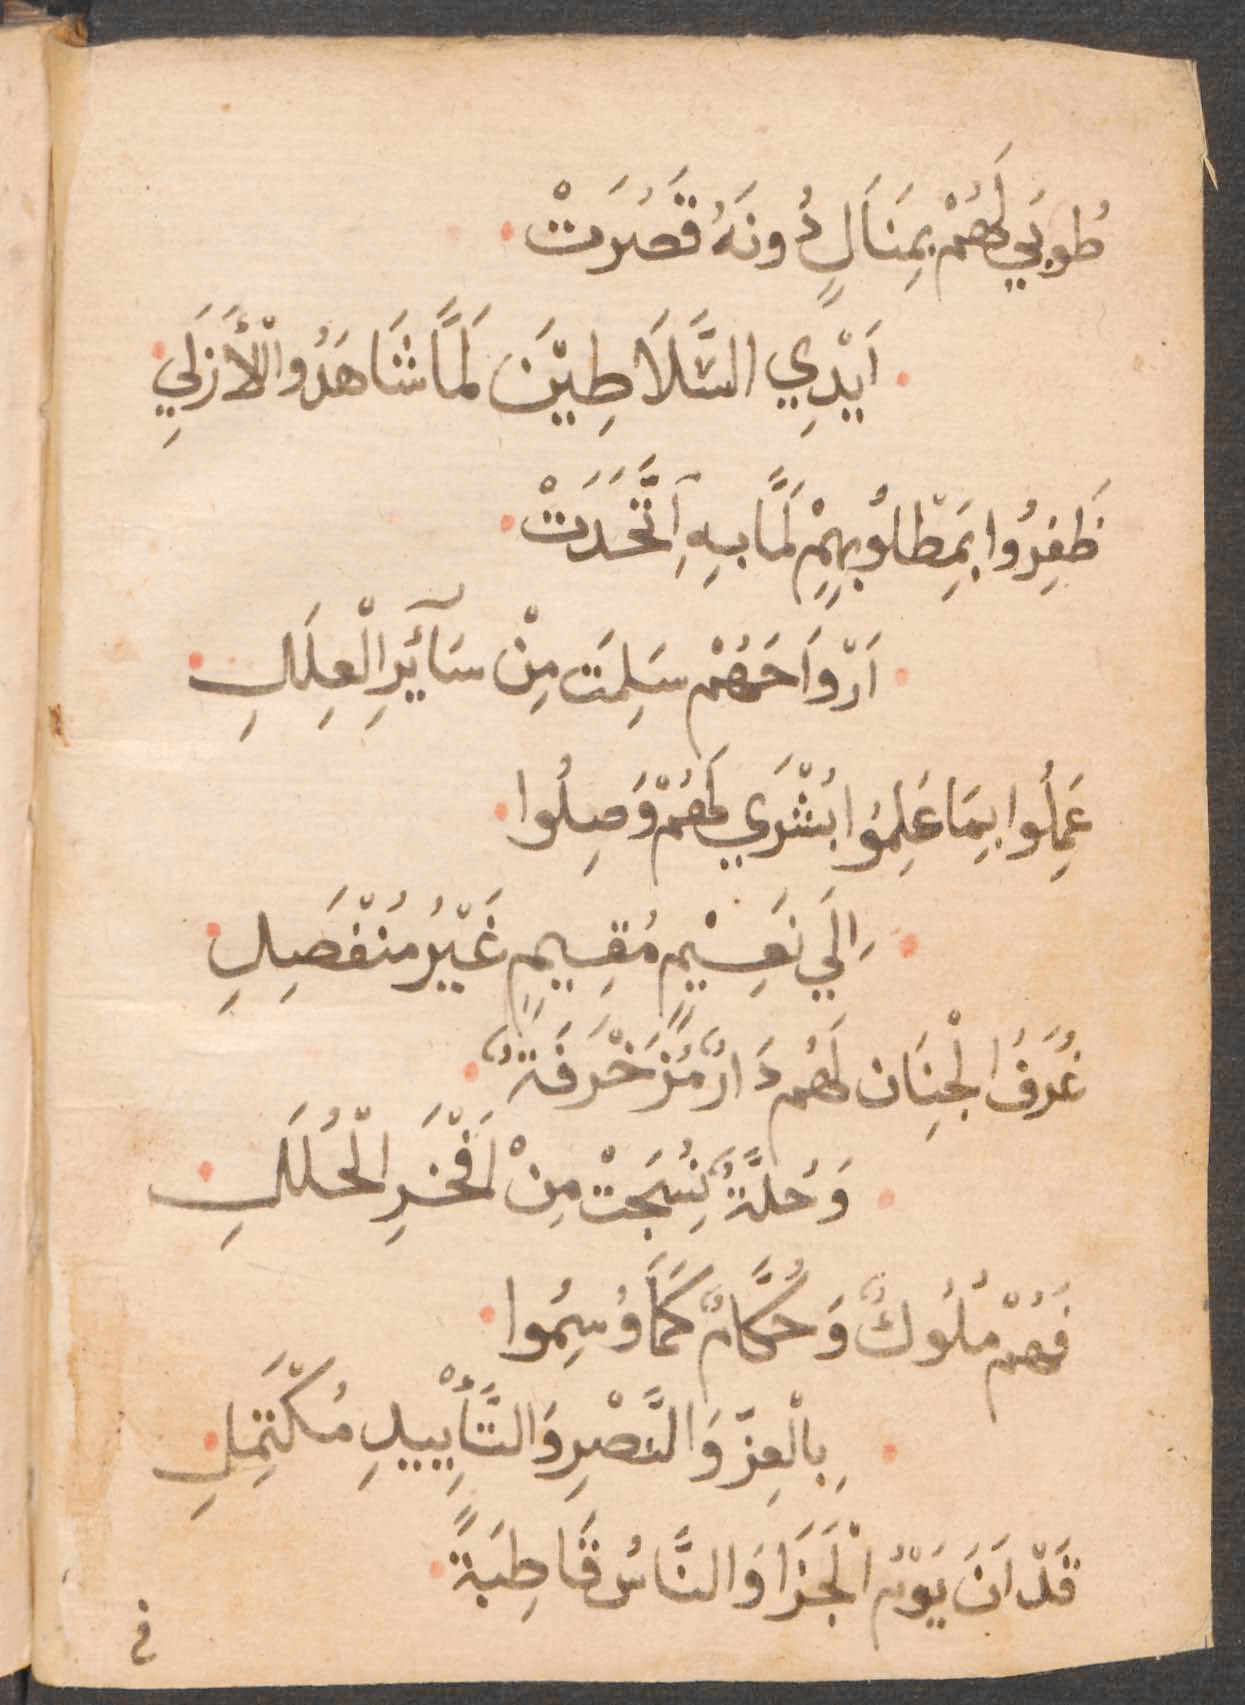 طُوبَي لَهُمْ بِمَنَالٍ دُونَهُ قَصُرَتْ
اَيْدِي السَّلَاطِيْنَ لَمَّا شَاهَدُوا الْأَزَلِي
ظَفِرُوا بِمَطْلُوْبِهِمْ لَمَّا بِهِ اِتَّحَدَتْ
اَرْوَاحَهُمْ سَلِمَت مِنْ سَآئِرِ الْعِلَلِ
عَمِلُوا بِمَا عَلِمُوا بُشْرَي لَهُمْ وَصِلُوا
اِلَي نَعِيْمٍ مُقِيمٍ غَيْرُ مُنْفَصِلِ
غُرَفُ الْجِنَان لَهُم دَارٌ مُزَخْرَفَةٌ
وَحُلَّةٌ نُسِجَتْ مِنْ اَفْخَرِ الْحُلَلِ
فَهُمْ مُلُوكٌ وَحُكَّامٌ كَمَا وُسِمُوا
بِالْعِزِّ وَالنَّصْرِ وَالتَّأْيِيدِ مُكْتَمِلِ
قَدْ اَنَ يَوْمُ الْجَزَا وَالنَّاسُ قَاطِبَةً
في